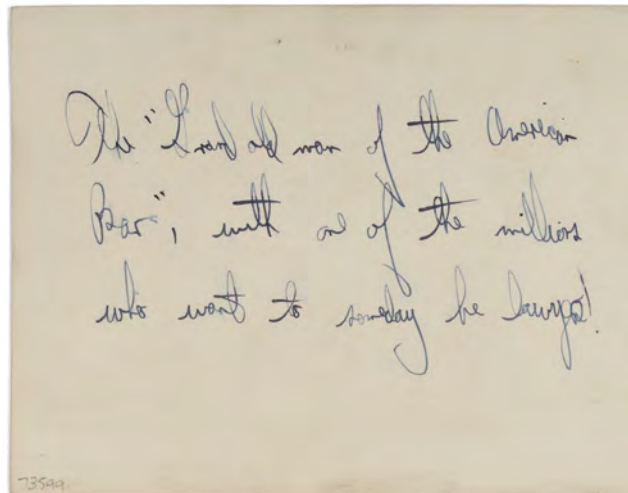 The "Grand old man of the American
Bar", with one of the millions
who want to someday be lawyers!
73599